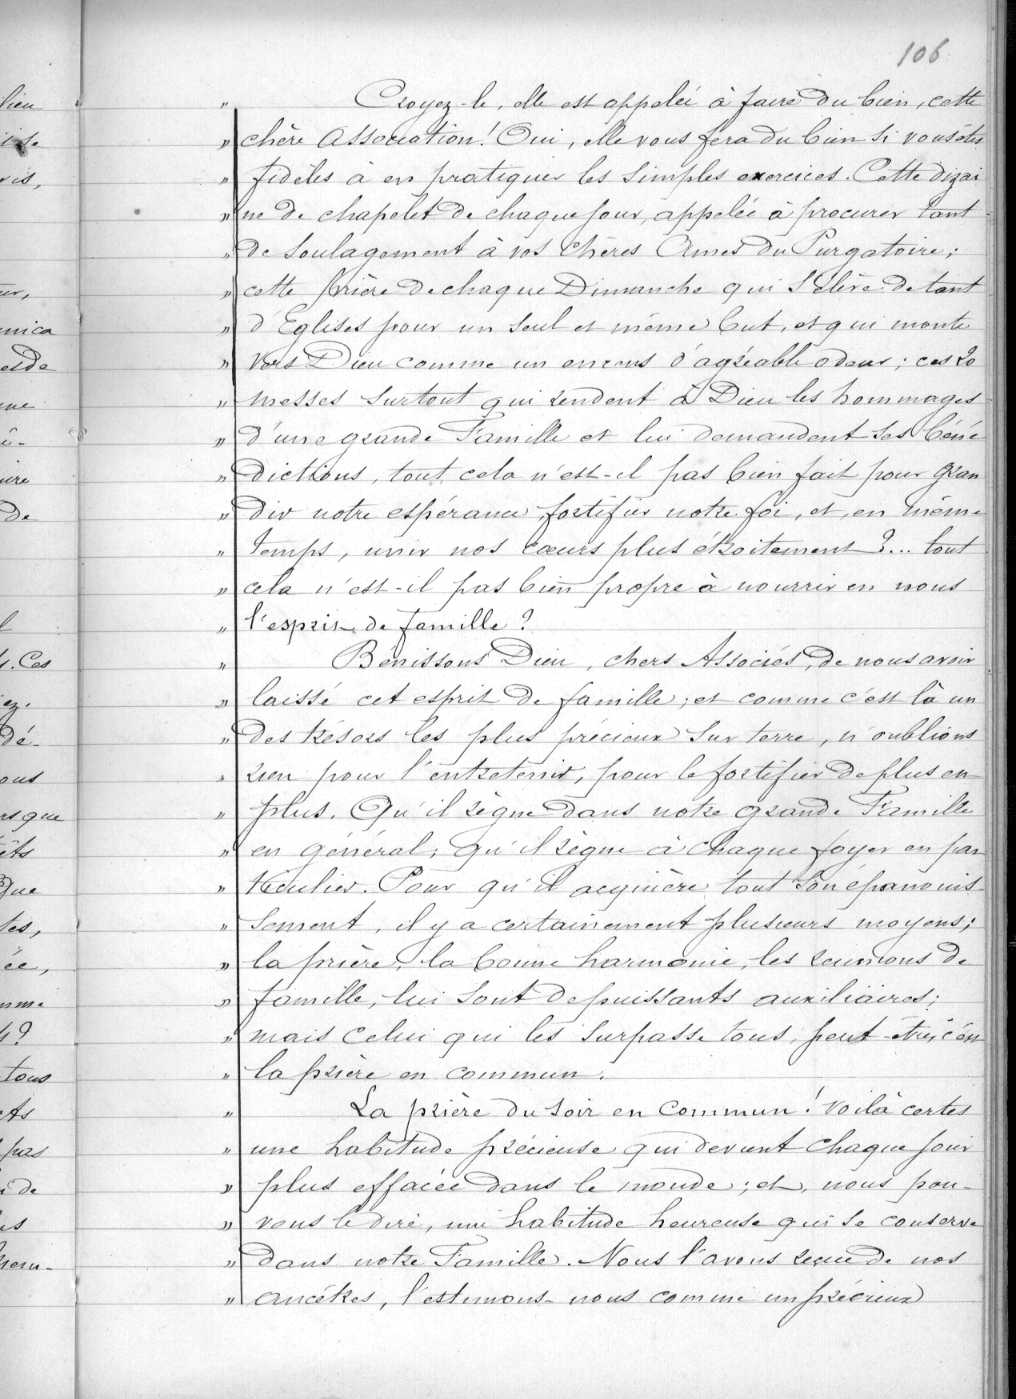 106
" Croyez-le, elle est appelée à faire du bien, cette
" chère Association! Oui, elle vous fera du bien si vous êtes
" fidèles à en pratiquer les simples exercices. Cette dizai
" ne de chapelet de chaque jour, appelée à procurer tant
" de soulagement à vos chères Ames du Purgatoire;
" cette prière de chaque Dimanche qui s'élève de tant
" d'Eglises pour un seul et même but, et qui monte
" vers Dieu comme un encens d'agréable odeur; ces 20
" messes surtout qui rendent à Dieu les hommages
" d'une grande Famille et lui demandent ses béné
" dictions, tout cela n'est-il pas bien fait pour gran
" dir notre espérance, fortifier notre foi, et, en même
" temps, unir nos cœurs plus étroitement?... tout
" cela n'est-il pas bien propre à nourrir en nous
" l'esprit de famille?
" Bénissons Dieu, chers Associés, de nous avoir
" laissé cet esprit de famille; et comme c'est là un
" des trésors les plus précieux sur terre, n'oublions
" rien pour l'entretenir, pour le fortifier de plus en
" plus. Qu'il règne dans notre grande Famille
" en général; qu'il règne à chaque foyer en par
" ticulier. Pour qu'il acquière tout son épanouis
" sement, il y a certainement plusieurs moyens;
" la prière, la bonne harmonie, les réunions de
" famille, lui sont de puissants auxiliaires;
" mais celui qui les surpasse tous, peut-être, c'est
" la prière en commun.
" La prière du soir en commun! voilà certes
" une habitude précieuse qui devient chaque jour
" plus effacée dans le monde; et, nous pou-
" vons le dire, une habitude heureuse qui se conserve
" dans notre Famille. Nous l'avons reçue de nos
" ancêtres, l'estimons-nous comme un précieux